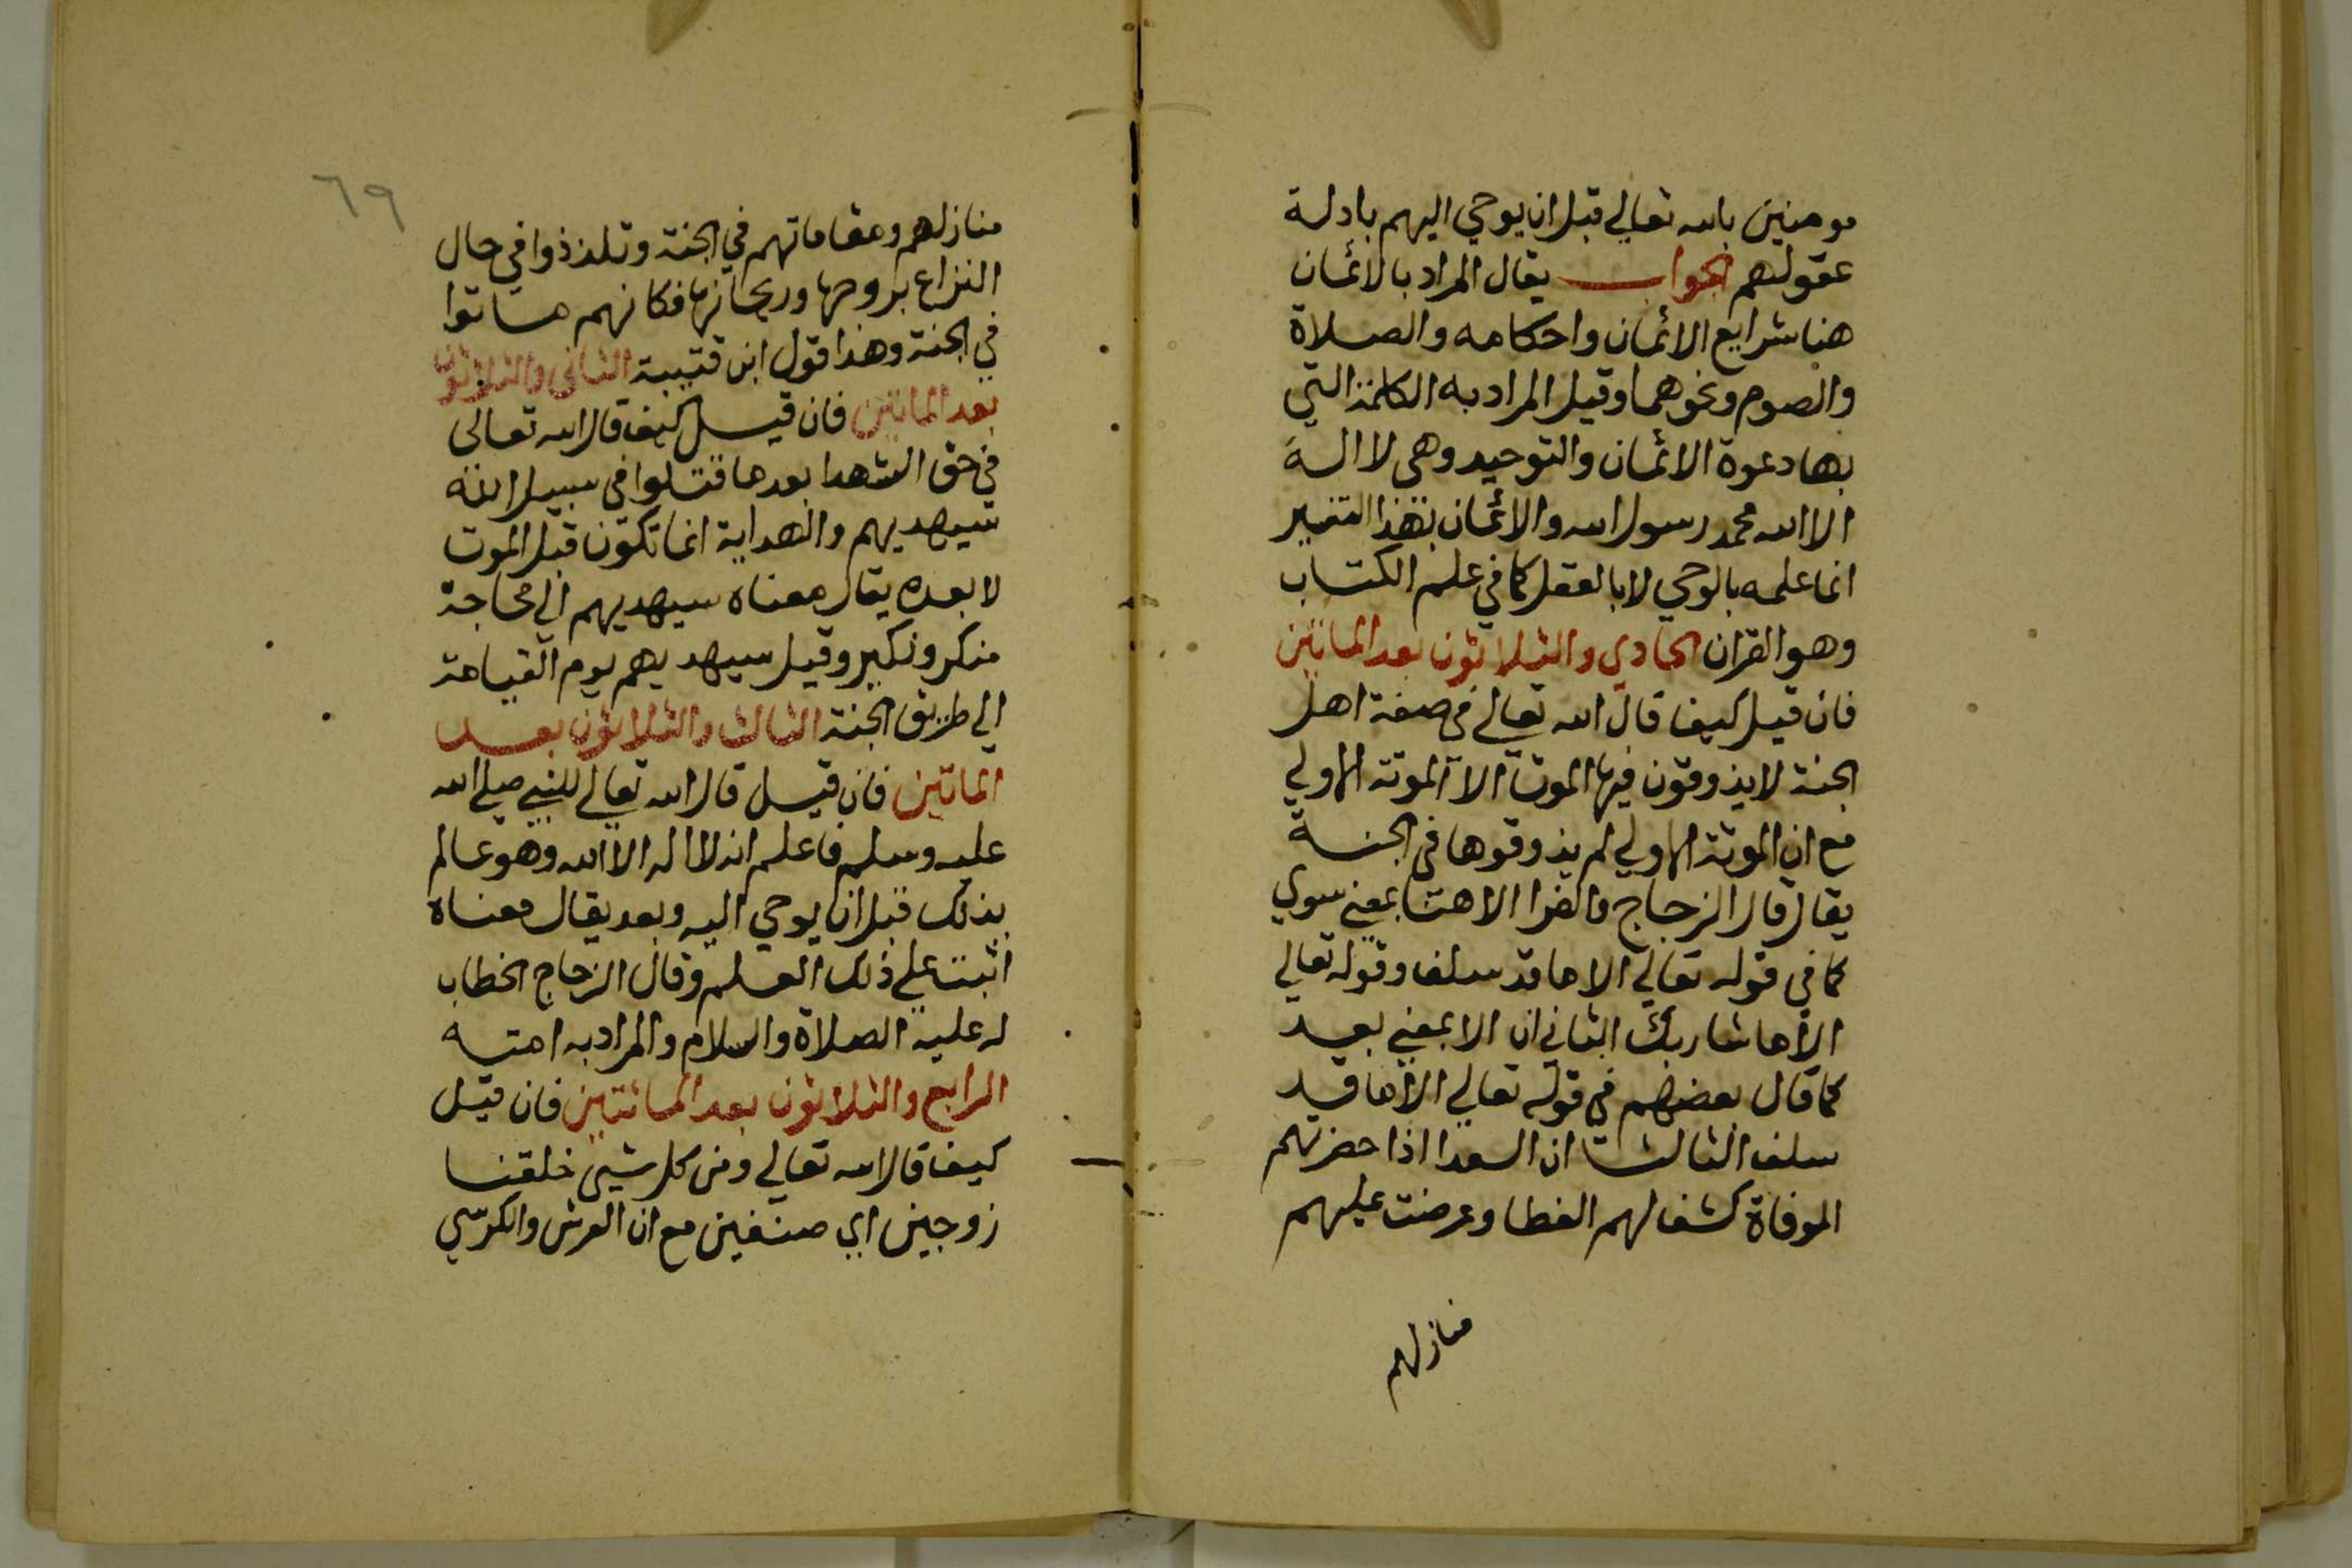 مومنين بالله تعالي قبل ان يوحي اليهم بادلة
عقولهم الجواب يقال المراد بالائمان
هنا شرايع الائمان واحكامه والصلاة
والصوم ونحوهما وقيل المراد به الكلمة التي
بها دعوة الائمان والتوحيد وهي لا اله
الا الله محمد رسول الله والائمان بهذا التفسير
انما علمه بالوحي لا بالعقل كما في علم الكتاب
وهو القران الحادي والثلاثون بعد الماتين
فان قيل كيف قال الله تعالي في صفة اهل
الجنة لا يذوقون فيها الموت الا الموتة الاولي
مع ان الموتة الاولي لم يذوقوها في الجنة
يقال قال الزجاج والفرا الا هنا بمعني سوي
كما في قوله تعالي الا ما قد سلف وقوله تعالي
الا ما شا ربك الثاني ان الا بمعني بعد
كما قال بعضهم في قوله تعالي الا ما قد
سلف الثالث ان السعدا اذا حضرتهم
الموفاة كشف لهم الغطا وعرضت عليهم
منازلهم
٦٩
منازلهم ومقاماتهم في الجنة وتلذذوا في حال
النزاع بروحها وريحانها فكانهم ماتوا
في الجنة وهذا قول ابن قتيبة الثاني والثلاثون
بعد الماتين فان قيل كيف قال الله تعالى
في حق الشهدا بعد ما قتلوا في سبيل الله
سيهديهم والهداية انما تكون قبل الموت
لا بعده يقال معناه سيهديهم الي محاجة
منكر ونكير وقيل سيهديهم يوم القيامة
الي طريق الجنة الثالث والثلاثون بعد
الماتين فان قيل قال الله تعالي للنبي صلي الله
عليه وسلم فاعلم انه لا اله الا الله وهو عالم
بذلك قبل ان يوحي اليه وبعد يقال معناه
اثبت علي ذلك العلم وقال الزجاج الخطاب
له عليه الصلاة والسلام والمراد به امته
الرابع والثلاثون بعد المائتين فان قيل
كيف قال الله تعالي ومن كل شيي خلقنا
زوجين اي صنفين مع ان العرش والكرسي